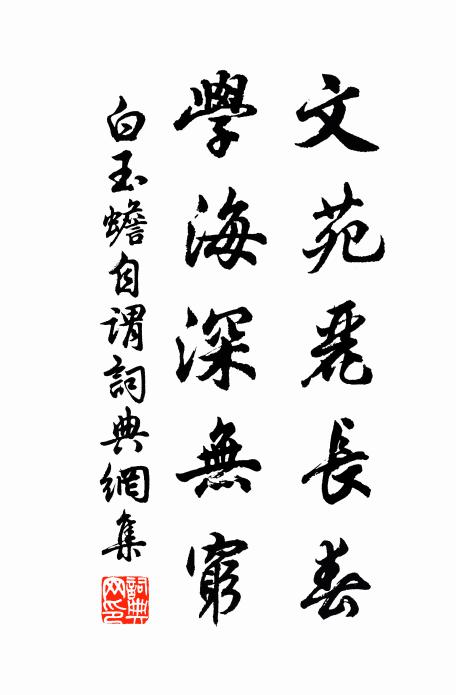 文苑麗長春
學海深無窮
白玉蟾自謂詞典網集
詞典網印